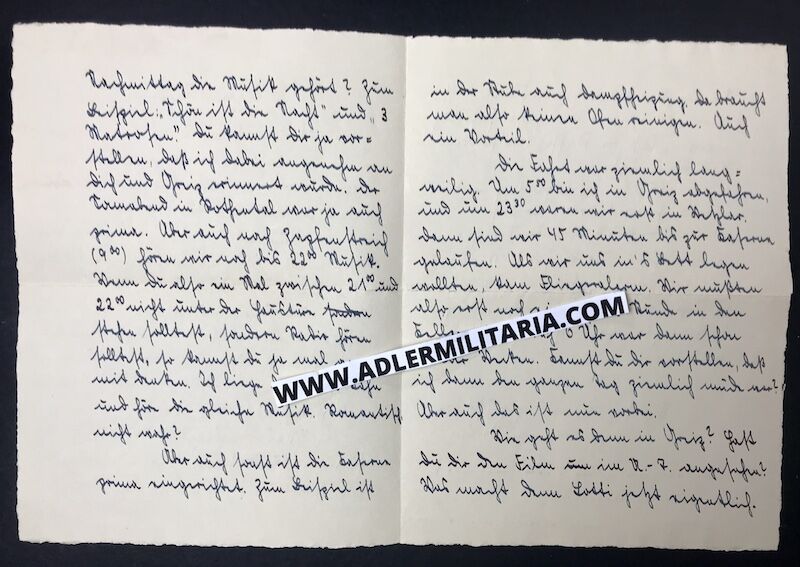 Nachmittag die Musik gehört? Zum
Beispiel: "Schön ist die Nacht" und "3
Matrosen" Du kannst dir ja vor=
stellen, daß ich dabei angenehm an
dich und Greiz erinnert wurde. Der
Tanzabend in Rothental war ja auch
prima. Aber auch nach Zapfenstreich
(9⁰⁰) hören wir noch bis 22⁰⁰ Musik.
Wenn du also ein Mal zwischen 21⁰⁰ und
22⁰⁰ nicht unter der Haustüre sondern
stehen solltest, sondern Radio hören
solltest, so kannst du ja mal
mit denken. Ich liege
und höre die gleiche Musik. Romantisch
nicht wahr?
Aber auch sonst ist die Kaserne
prima eingerichtet. Zum Beispiel ist
in der Stube auch Dampfheizung. Da braucht
man also keinen Ofen reinigen. Auch
ein Vorteil.
Die Fahrt war ziemlich lang=
weilig. Um 5⁰⁰ bin ich in Greiz abgefahren,
und um 23³⁰ waren wir erst in Wetzlar.
Dann sind wir 45 Minuten bis zur Kaserne
gelaufen. Als wir uns in's Bett legen
wollten, kam Fliegeralarm. Wir mußten
also erst noch Stunde in den
6 Uhr war dann schon
Wecken. Kannst du dir vorstellen, daß
ich dann den ganzen Tag ziemlich müde war?
Aber auch das ist nun vorbei.
Wie geht es denn in Greiz? Hast
du dir den Film um im U.-T. angesehen?
Was macht denn Lotti jetzt eigentlich.
WWW.ADLERMILITARIA.COM